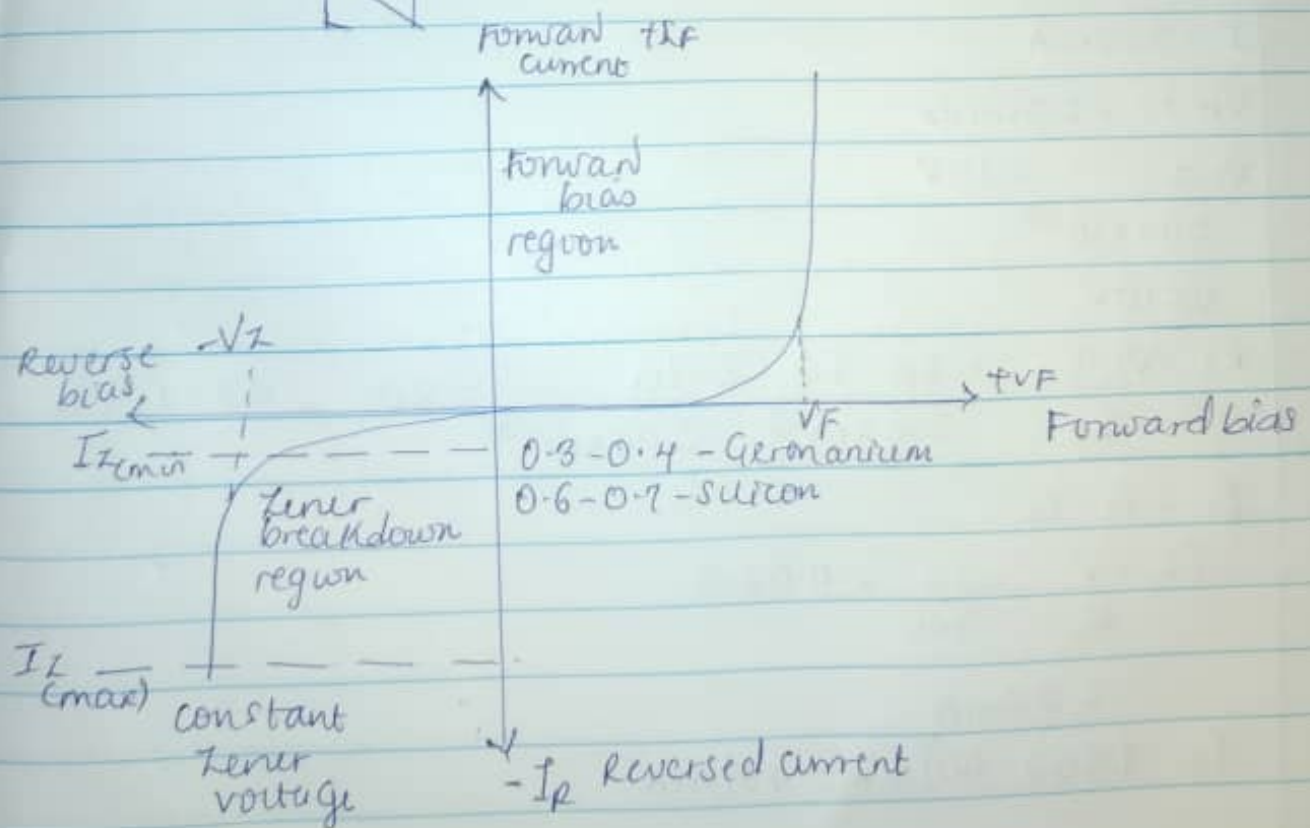 Forwan +IF
current
Forwan
bias
region
-VZ
Reverse
bias
+VF
VF
Forward bias
IZ(min)
0.3-0.4 - Germanium
0.6-0.7 - Silicon
Zener
breakdown
region
IZ
(max)
constant
Zener
voltage
-IR Reversed current